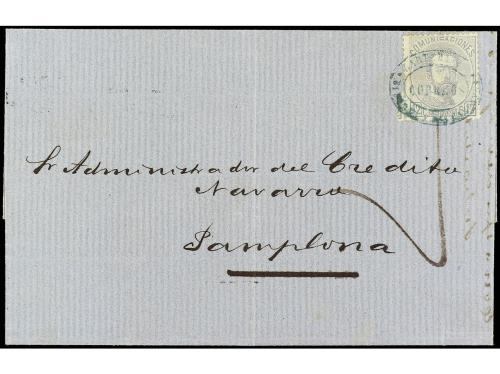 COMUNICACIONES
CORREO
Sr Administrador del Credito
Navarro
Pamplona